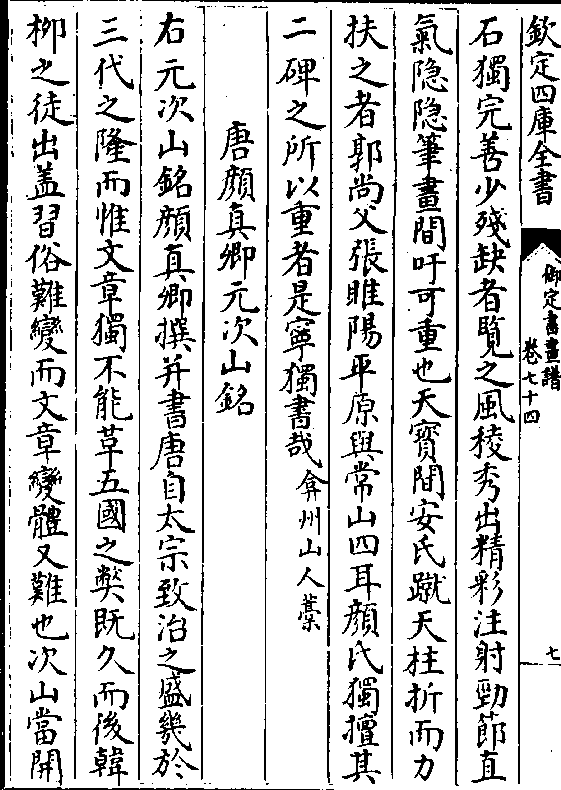 欽定四庫全書
御定書畫譜
卷七十四
七
石獨完善少殘缺者覽之風稜秀出精彩注射勁節直
氣隐隐筆畫間吁可重也天寳間安氏蹴天柱折而力
扶之者郭尚父張睢陽平原與常山四耳顔氏獨擅其
二碑之所以重者是寧獨書哉弇州山人藁
唐顔真卿元次山銘
右元次山銘顔真卿撰并書唐自太宗致治之盛幾於
三代之隆而惟文章獨不能革五國之弊既久而後韓
栁之徒出盖習俗難變而文章變體又難也次山當開